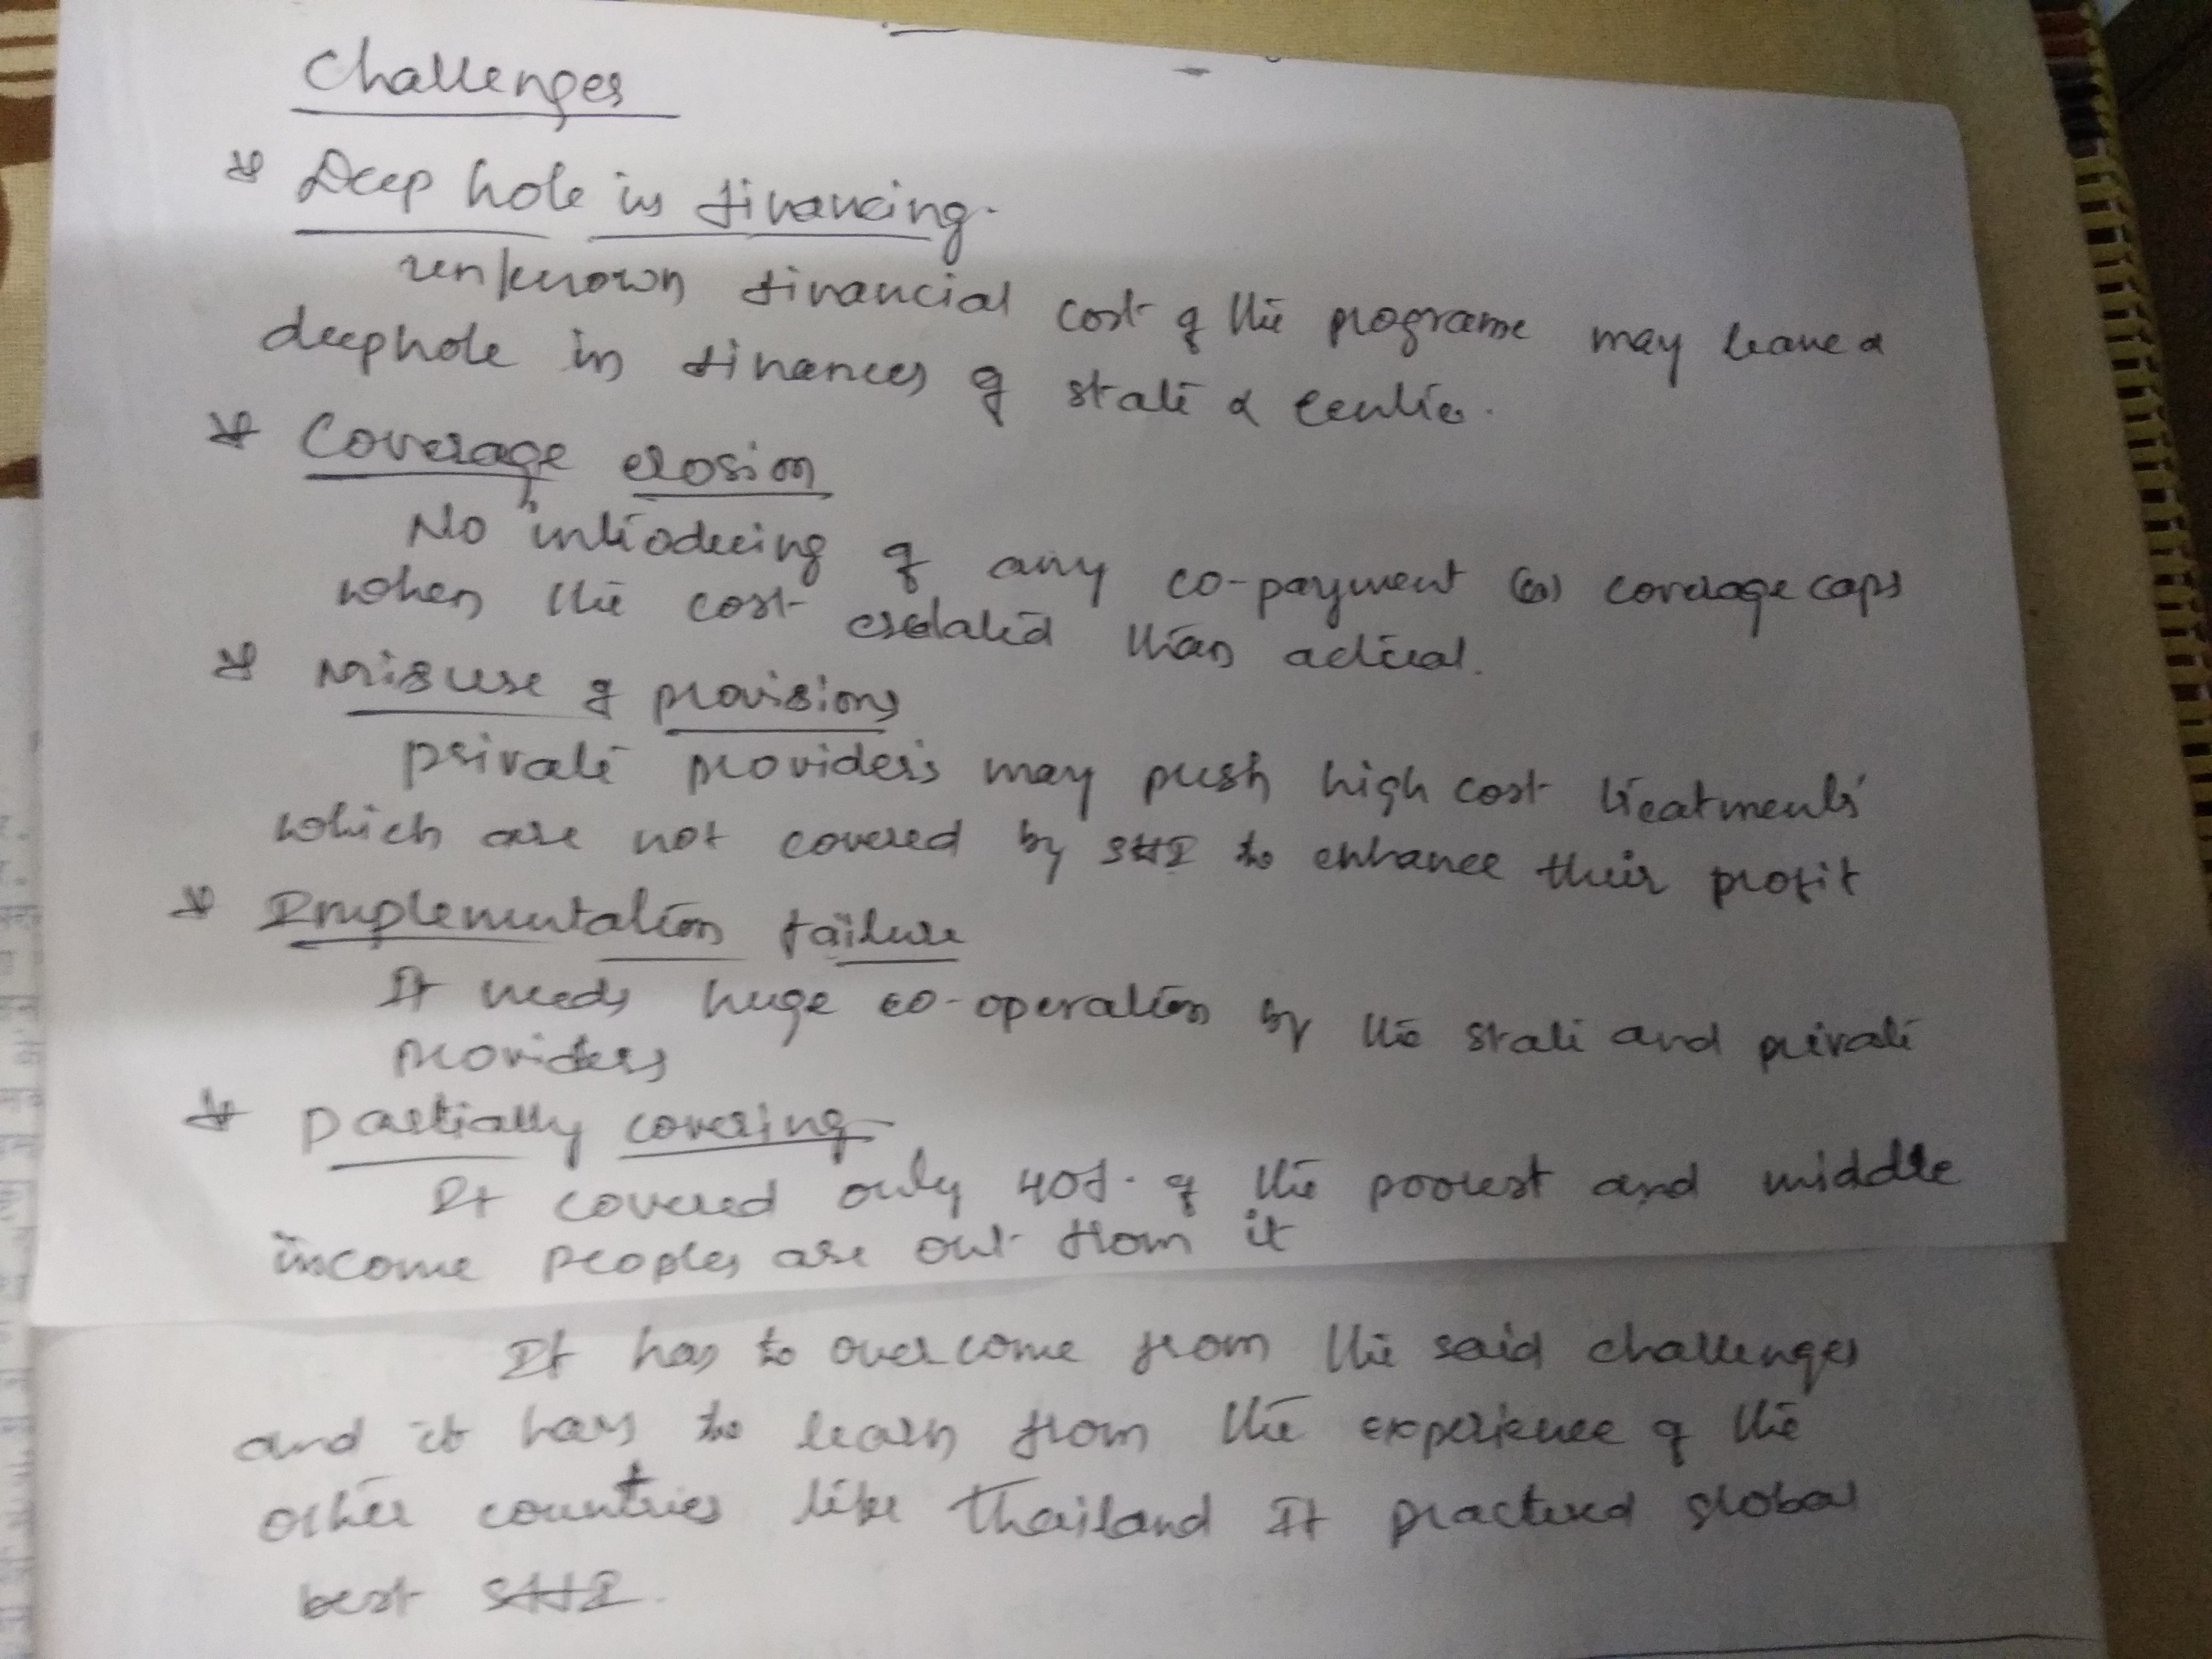 Challenges
* Deep hole in financing.
unknown financial cost of the programe may leave a
deephole in finances of state & centre.
* Coverage erosion
No introducing of any co-payment (or) coverage caps
when the cost esclated than actual.
* Misuse of provisions
private providers may push high cost treatments
which are not covered by SHI to enhance their profit
* Implementation failure
It needs huge co-operation by the state and private
providers
* Partially covering
It covered only 40%. of the poorest and middle
income peoples are out from it
It has to overcome from the said challenges
and it has to learn from the experience of the
other countries like Thailand It practured global
best SHI.